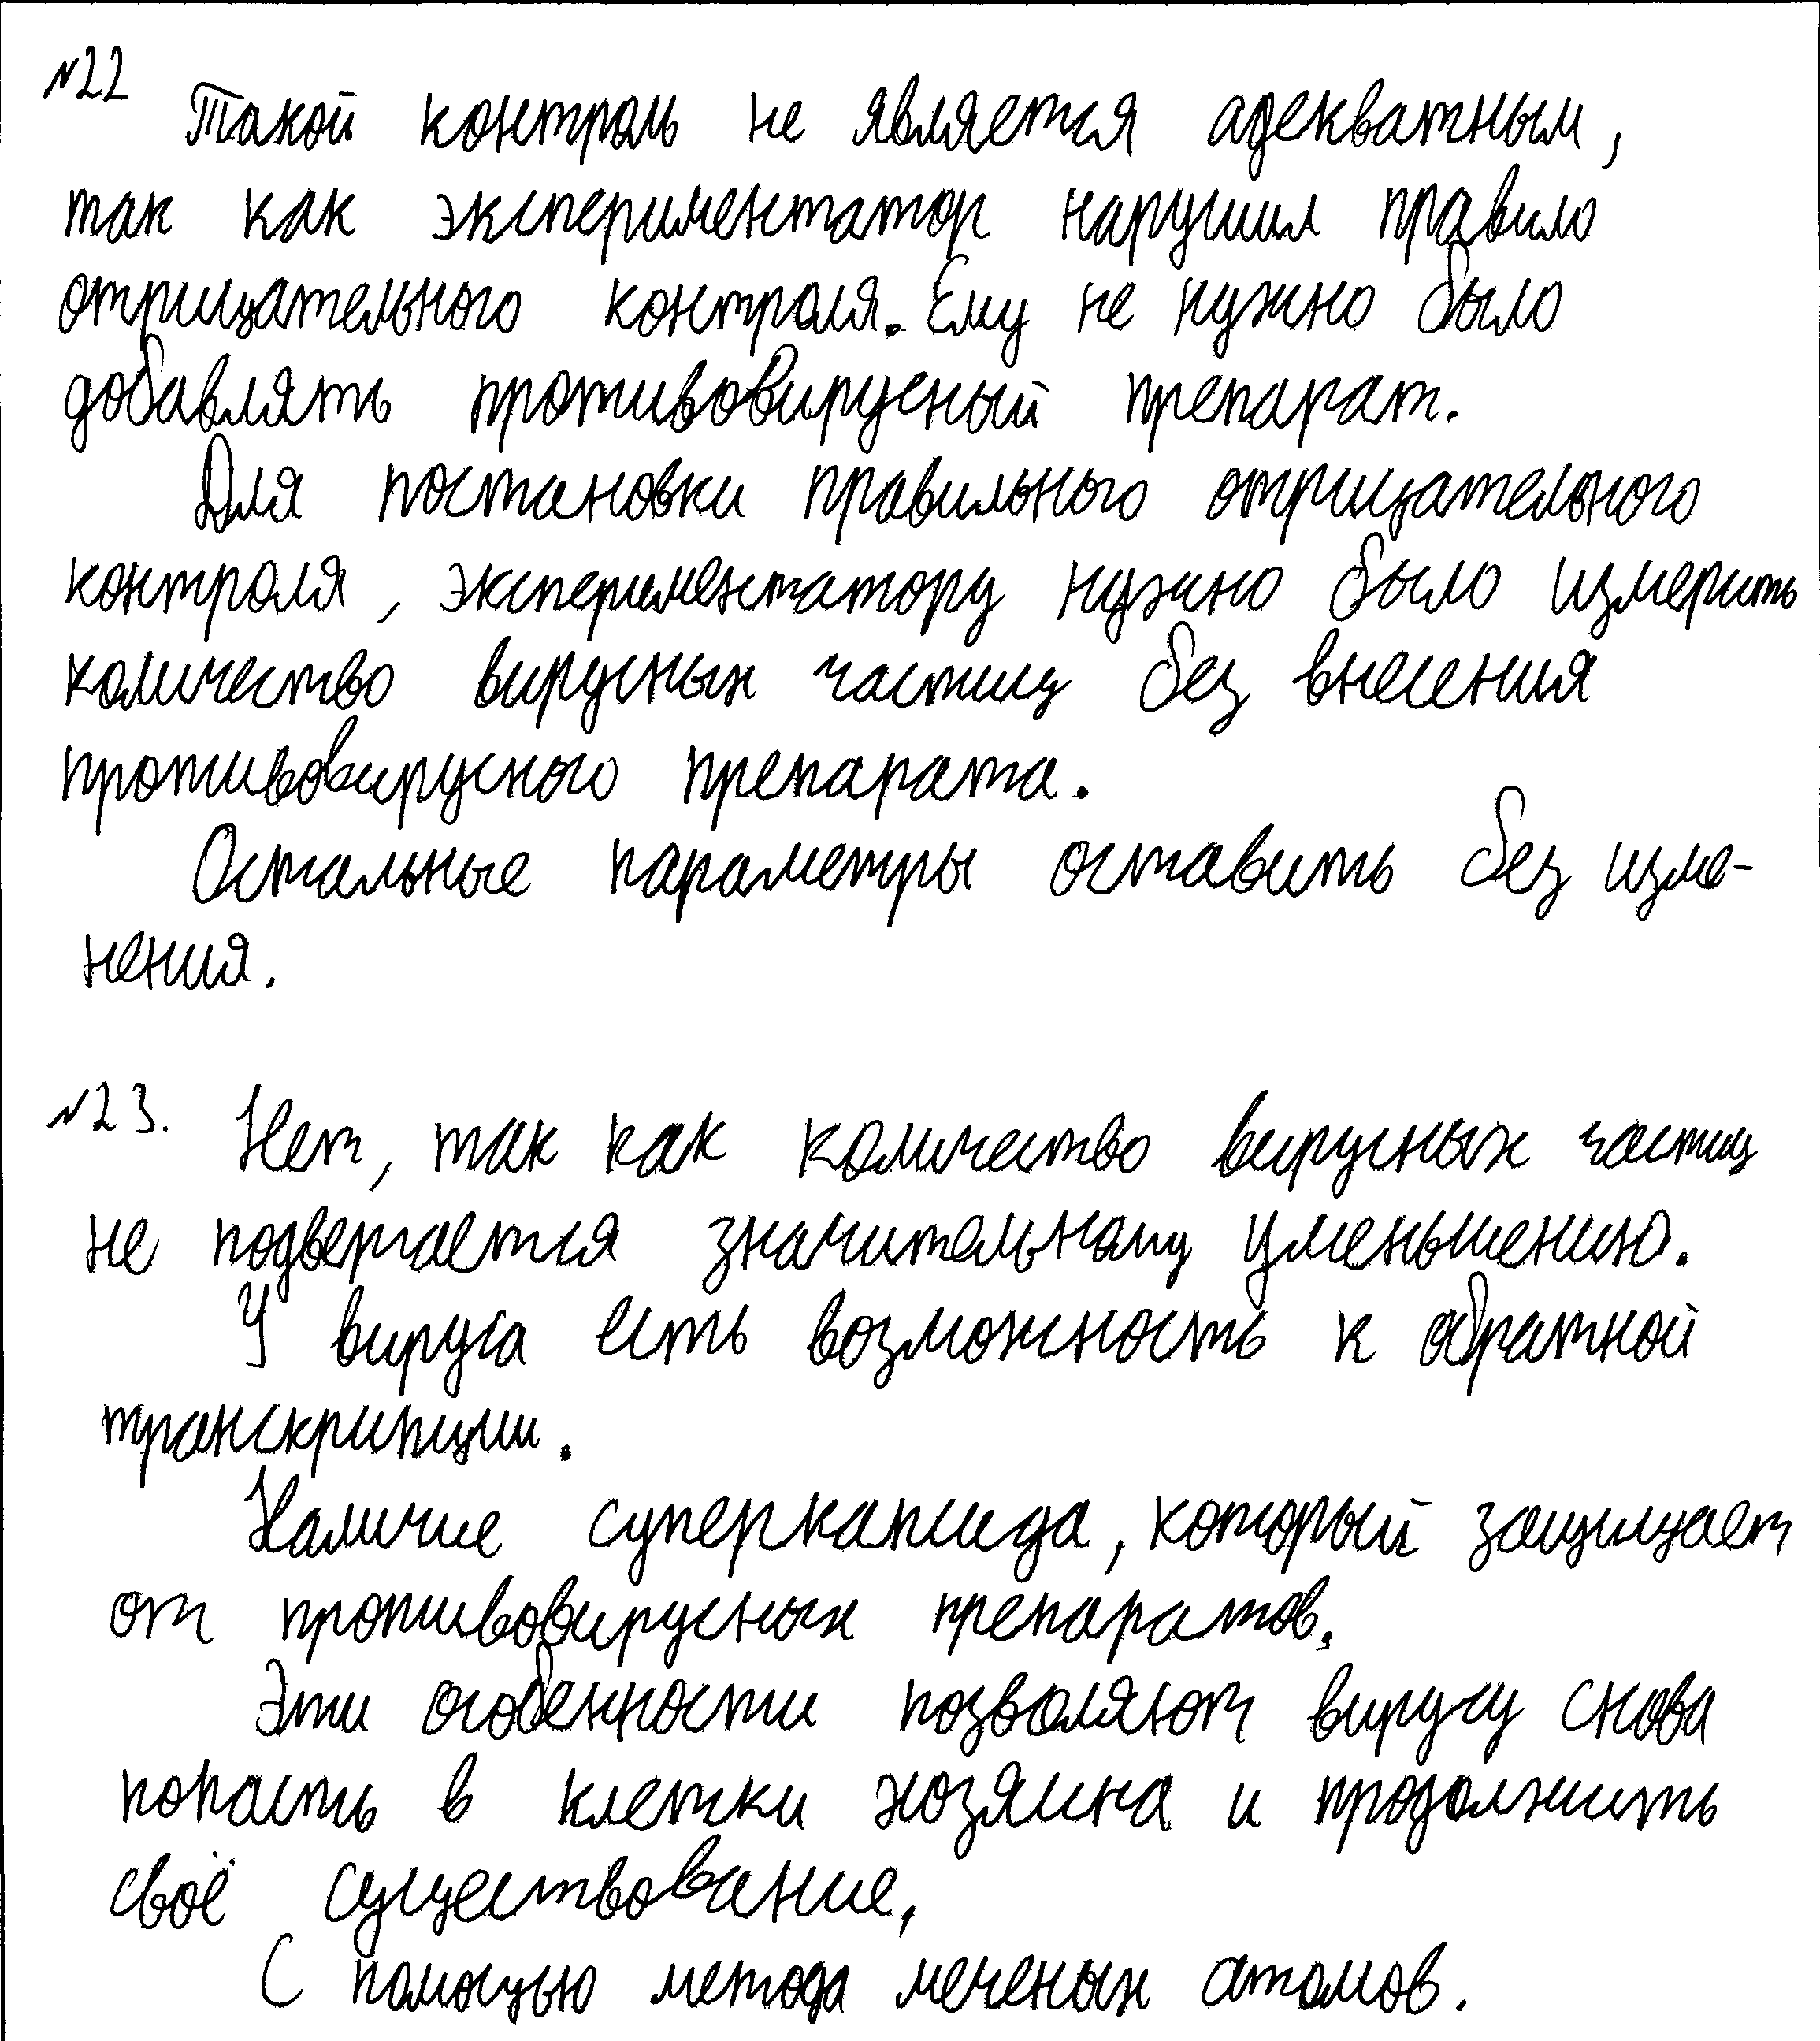 №22 Такой контроль не является адекватным,
так как экспериментатор нарушил правило
отрицательного контроля. Ему не нужно было
добавлять противовирусный препарат.
Для постановки правильного отрицательного
контроля, экспериментатору нужно было измерить
количество вирусных частиц без внесения
противовирусного препарата.
Остальные параметры оставить без изме-
нения.
№23. Нет, так как количество вирусных частиц
не подвергается значительному уменьшению.
У вируса есть возможность к обратной
транскрипции.
Наличие суперкапсида, который защищает
от противовирусных препаратов.
Эти особенности позволяют вирусу снова
попасть в клетки хозяина и продолжить
своё существование,
С помощью метода меченых атомов.